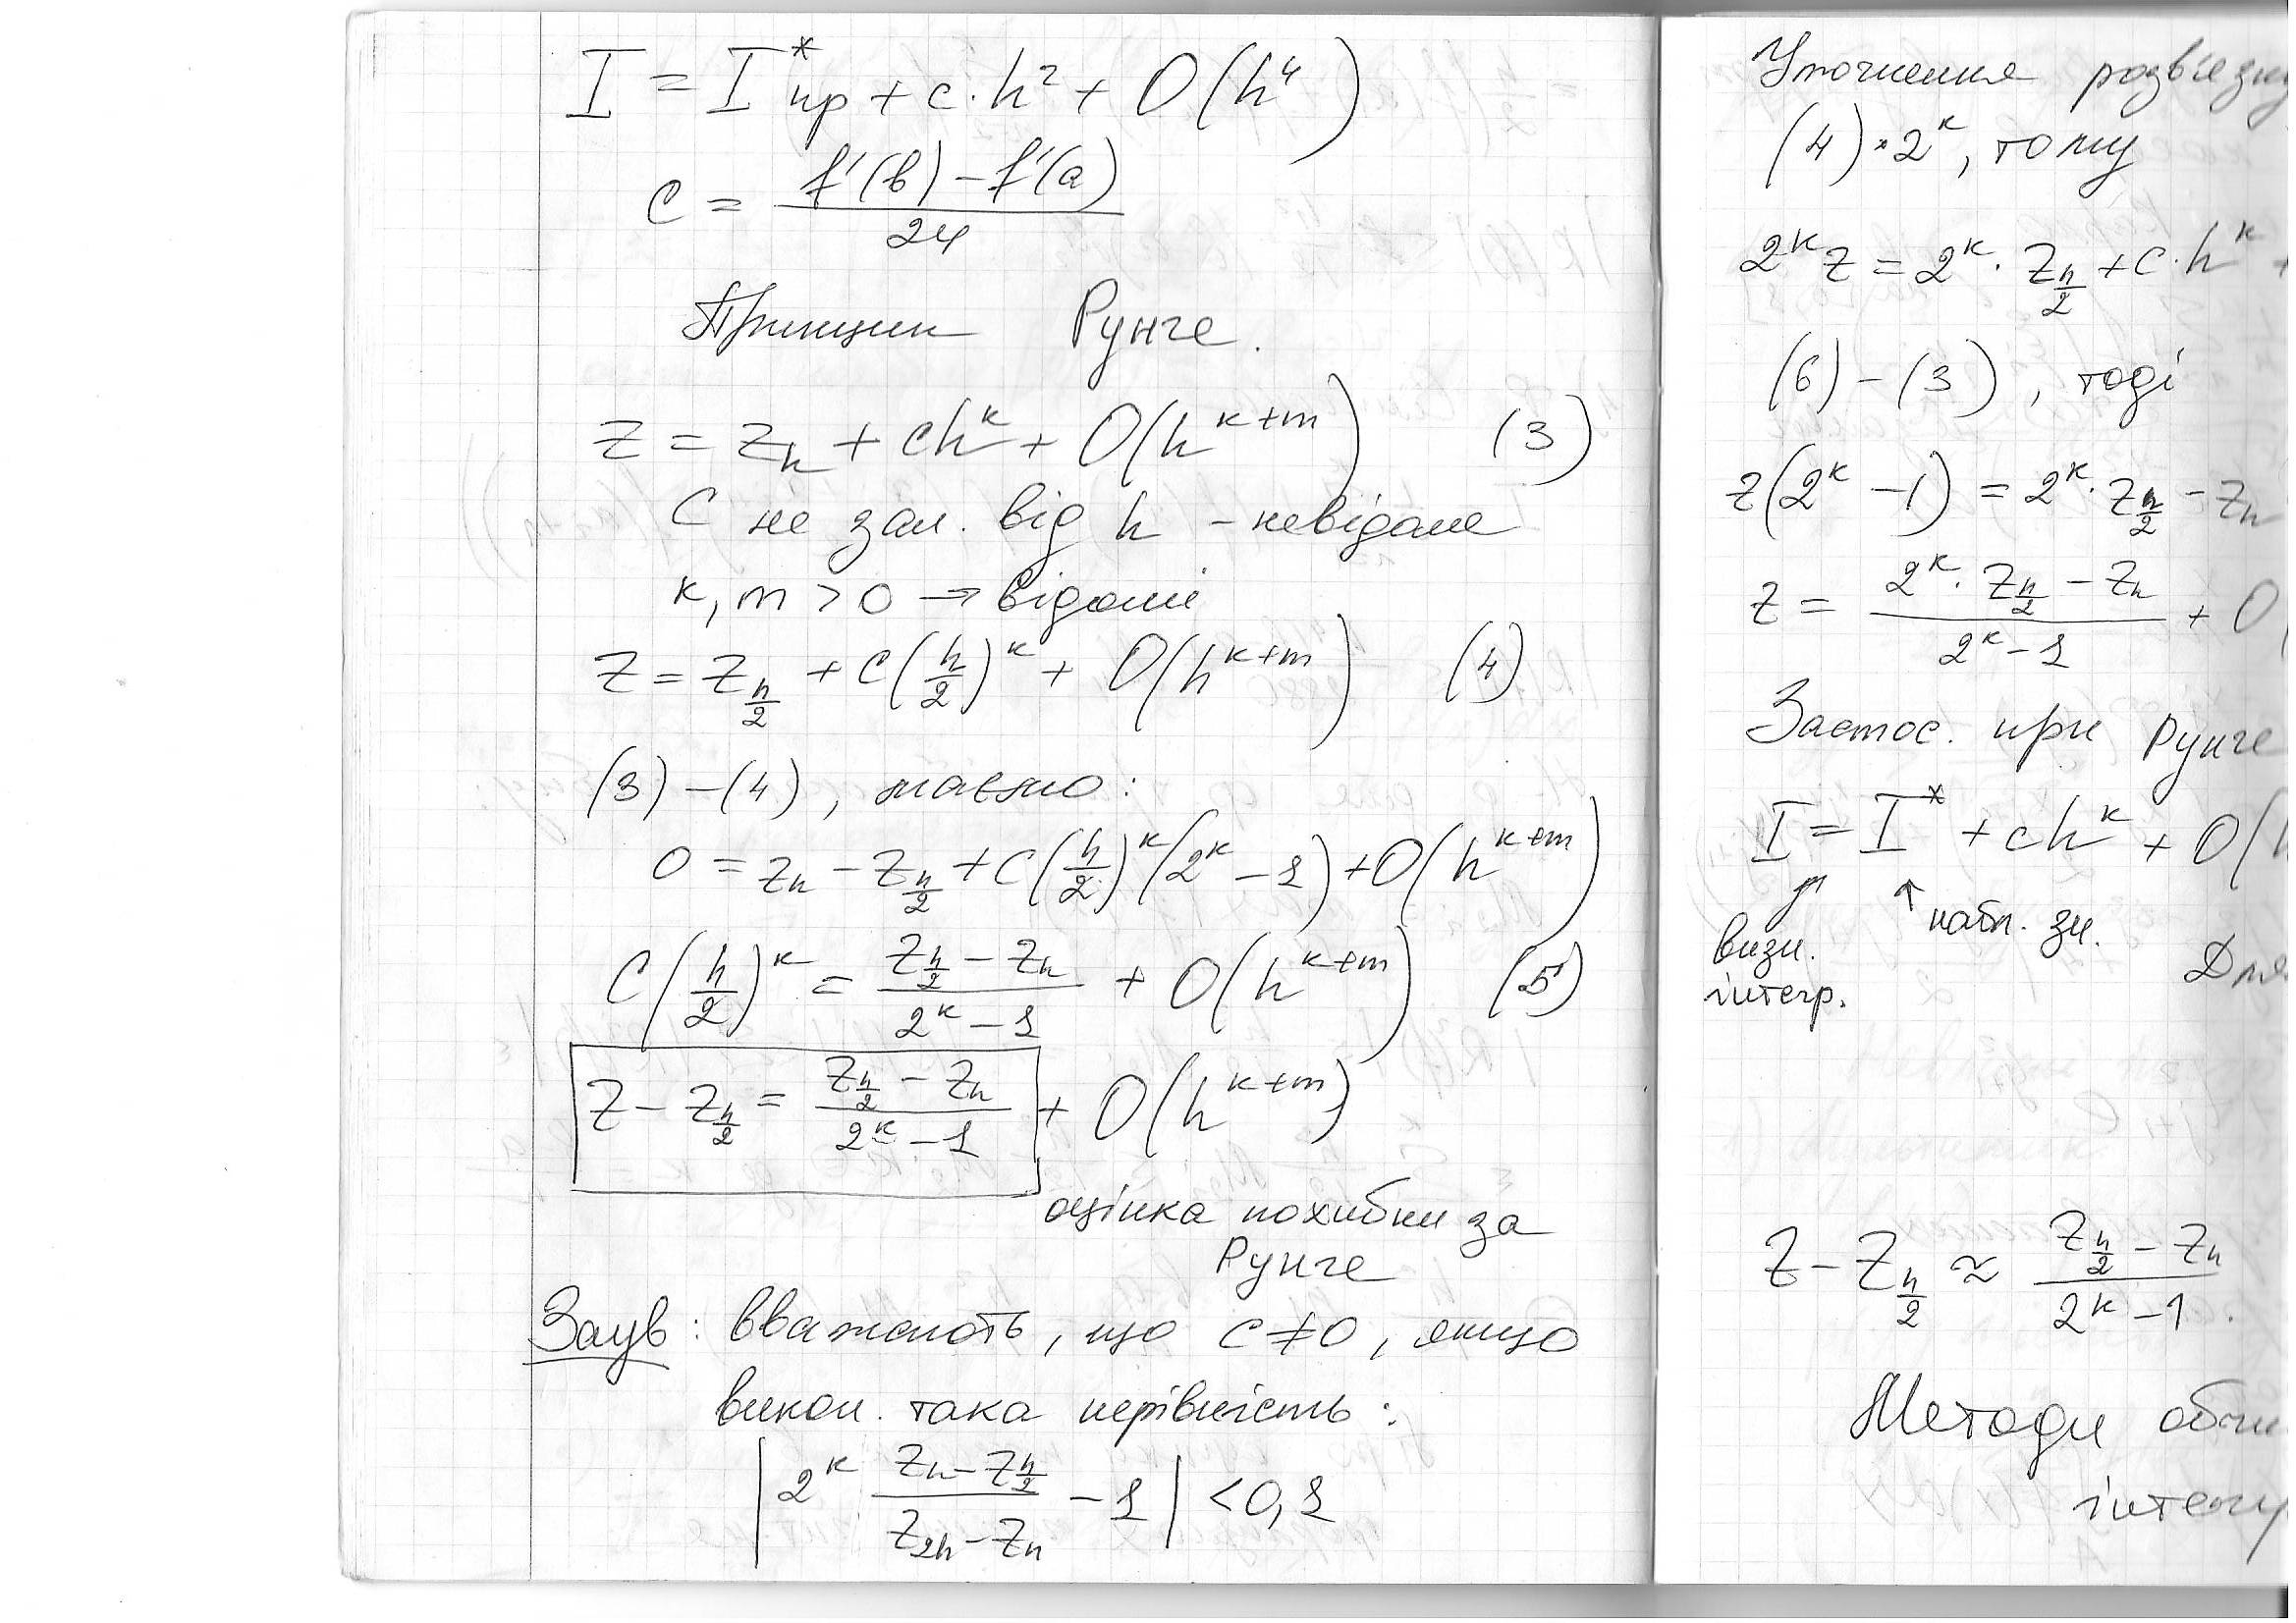 I = I*пр + c·h² + O(h⁴)
c = (f'(b) − f'(a)) / 24
Принцип Рунге.
z = z_h + ch^k + O(h^(k+m)) (3)
C не зал. від h – невідоме
k, m > 0 → відомі
z = z_(h/2) + c(h/2)^k + O(h^(k+m)) (4)
(3) − (4), маємо:
0 = z_h − z_(h/2) + c(h/2)^k (2^k − 1) + O(h^(k+m))
C(h/2)^k = (z_(h/2) − z_h) / (2^k − 1) + O(h^(k+m)) (5)
z − z_(h/2) = (z_(h/2) − z_h) / (2^k − 1) + O(h^(k+m))
оцінка похибки за
Рунге
Заув: вважають, що c ≠ 0, якщо
викон. така нерівність:
|2^k (z_h − z_(h/2)) / (z_(2h) − z_h) − 1| < 0,1
Уточнення розв'язку
(4) · 2^k, тому
2^k z = 2^k · z_(h/2) + c·h^k +
(6) − (3), тоді
z(2^k − 1) = 2^k · z_(h/2) − z_h
z = (2^k · z_(h/2) − z_h) / (2^k − 1) + O(
Застос. при Рунге
I = I* + ch^k + O(h
визн. набл. зн.
інтегр.
Для
z − z_(h/2) ≈ (z_(h/2) − z_h) / (2^k − 1).
Методи обчи
інтегр